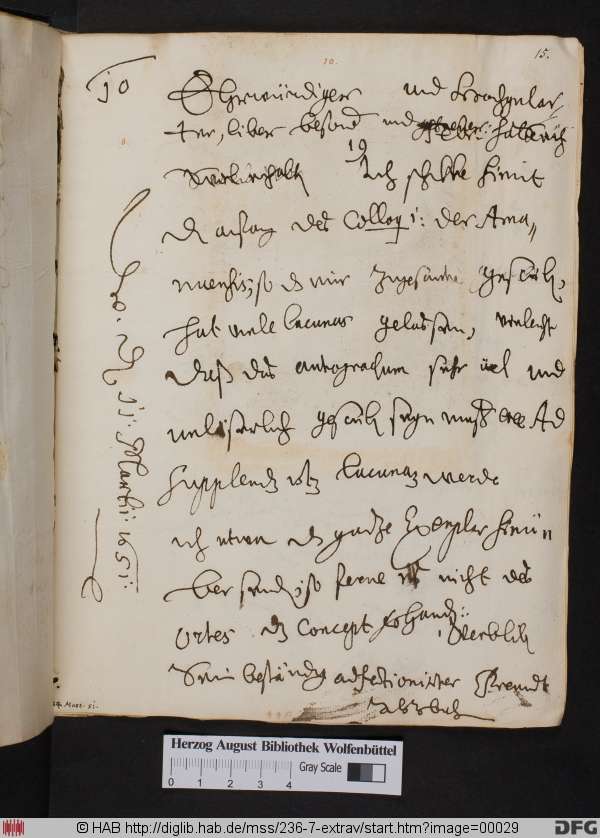 10.
15.
10
Ehrwürdiger und Hochgelar
ter, liber besond und
Ich schikke hirmit
den anfang des Colloq: der Ama,,
nuensis, so es mir zugesandt
hat viele lacunas gelassen, vieleicht
daß das autographum sehr übel und
unleserlich geschrieben seyn muß Ad
supplendas istas lacunas werde
ich etwan das gantze Exemplar hinü,,
ber senden, so ferne es nicht des
Ortes das Concept verhanden: verbleibe
Sein beständig adfectionirter Freundt
den 11: Martii: 1651:
Mart. 51.
Herzog August Bibliothek Wolfenbüttel
0 1 2 3 4 Gray Scale
© HAB http://diglib.hab.de/mss/236-7-extrav/start.htm?image=00029
DFG